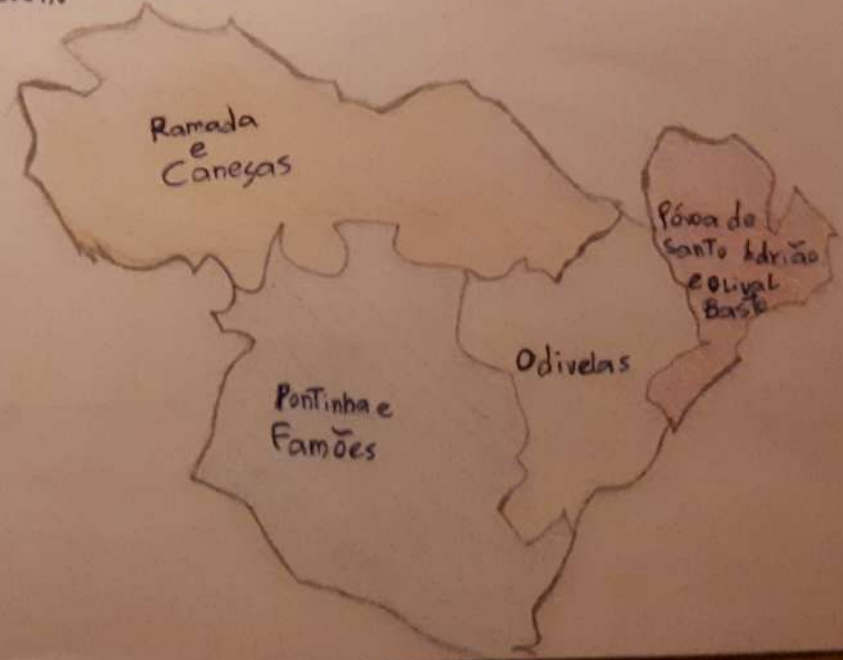 Ramada
e
Caneças
Póvoa de
Santo Adrião
e Olival
Basto
Odivelas
Pontinha e
Famões